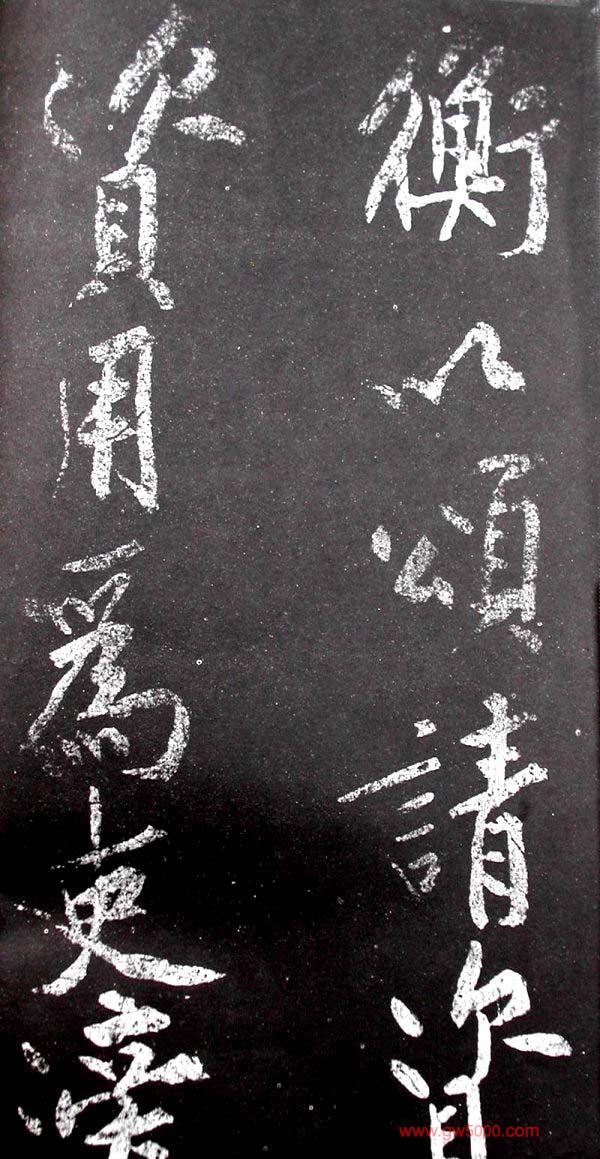 衡以頌請資
資用爲吏深
www.gw5000.com